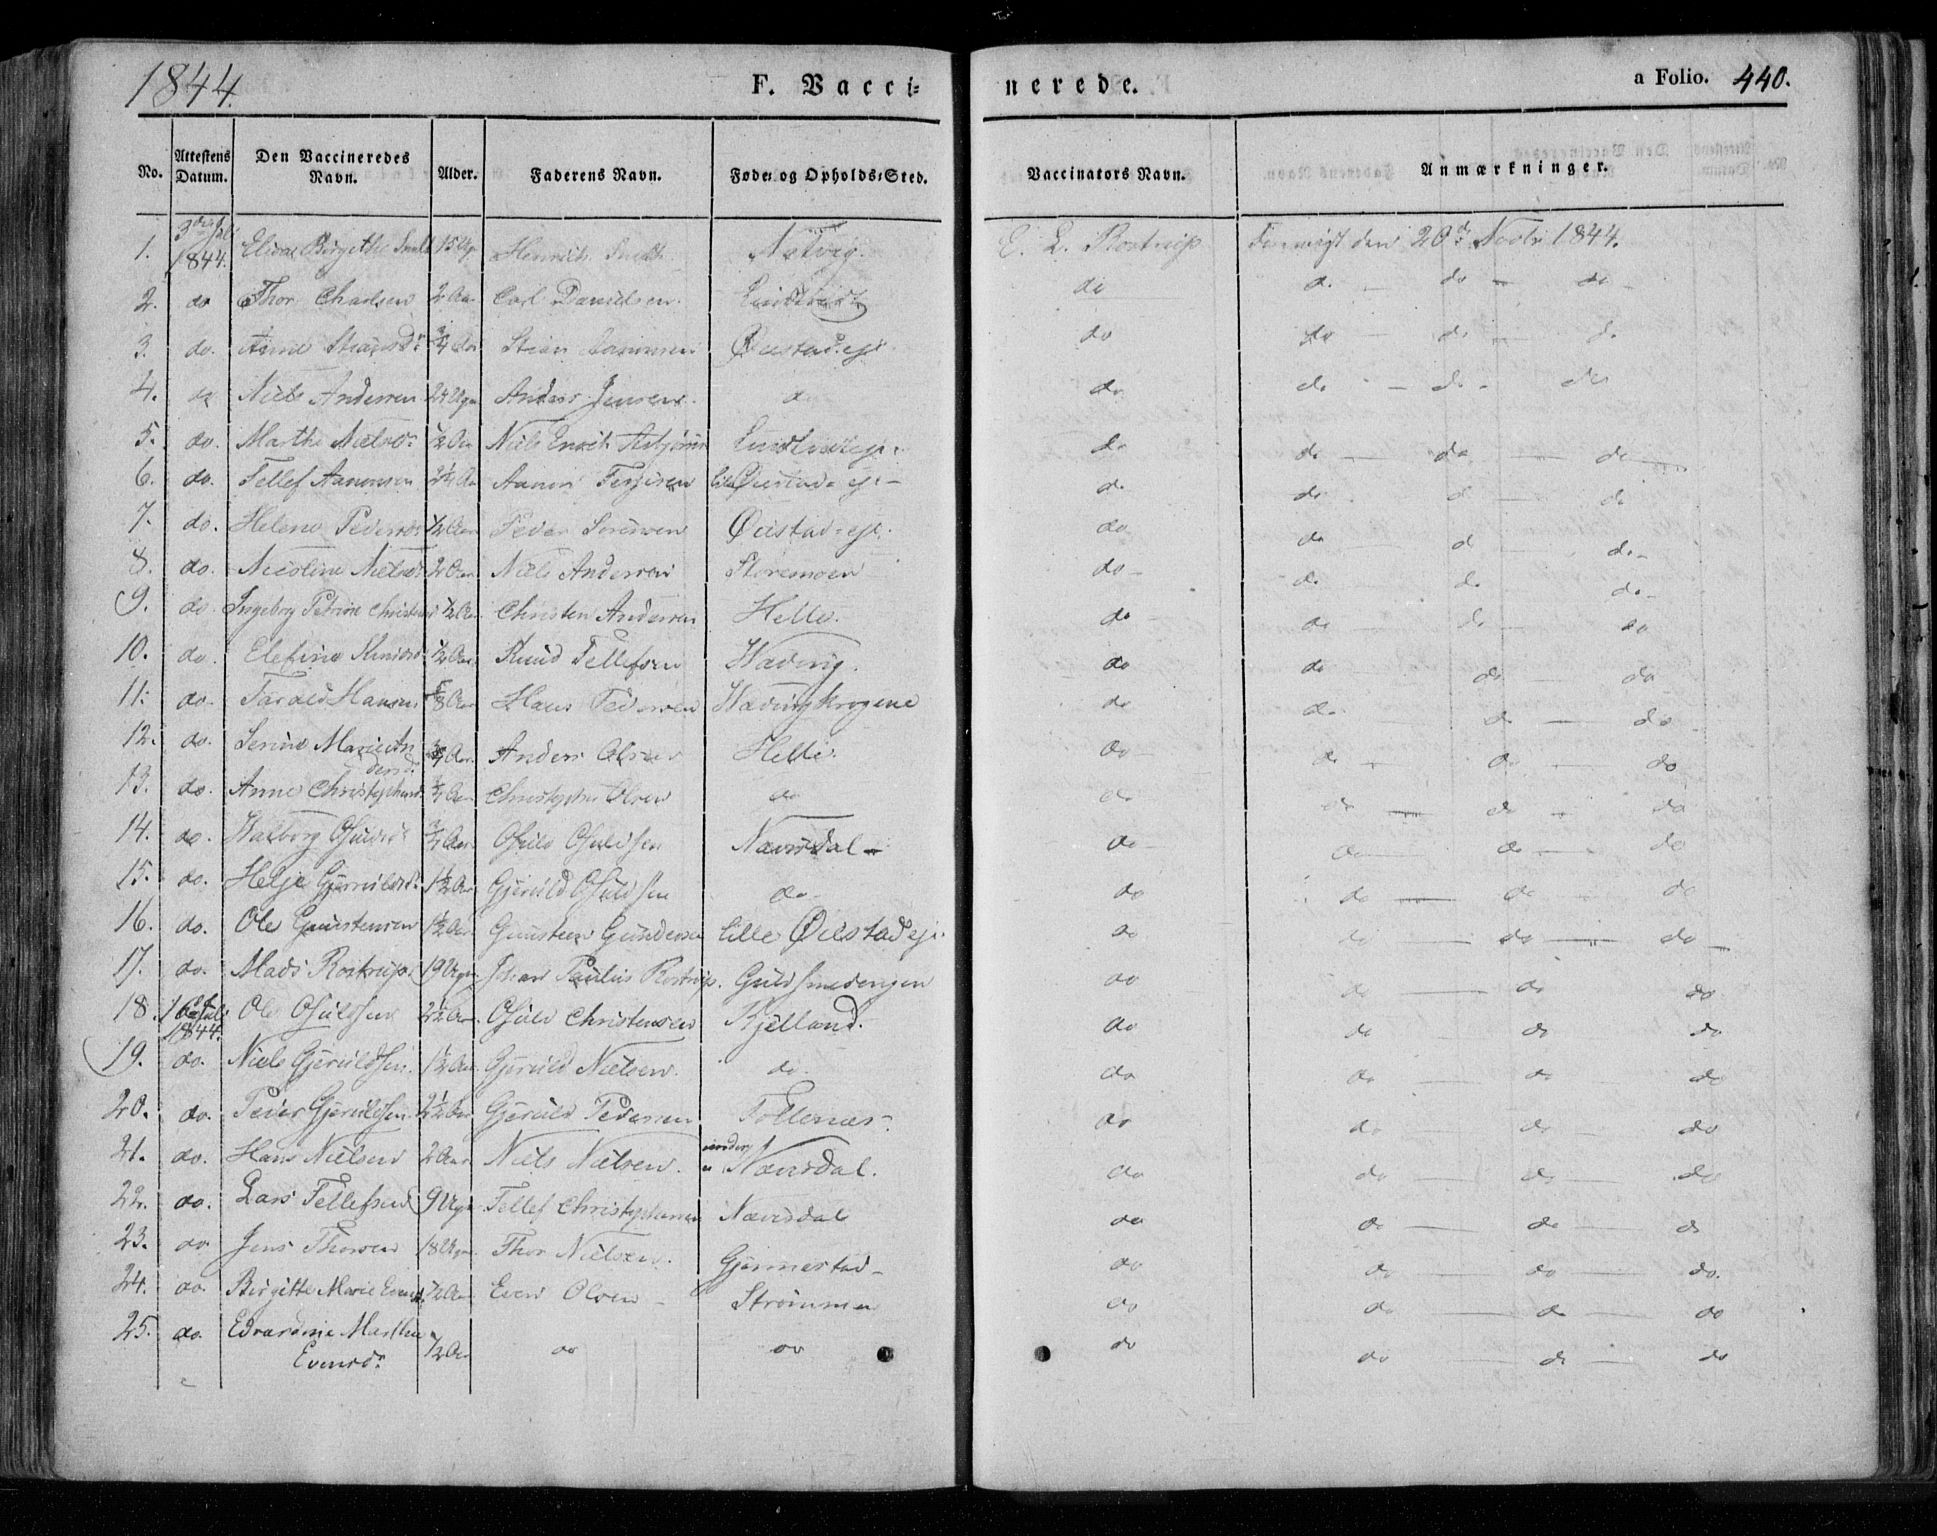 1844.
F. Vacci-
nerede.
a Folio. 440.
No. Attestens Datum. Den Vaccineredes Navn. Alder. Faderens Navn. Føde- og Opholds-Sted. Vaccinators Navn. Anmærkninger.
1. 3die Juli 1844. Birgithe 15 Ugr Natvig. E. L. Rostrup den 20de Novbr 1844.
2. do Thor Charlsen 2 Aar Carl Danielsen. do do do do
3. do. Anne 3/4 Aar Stian Øiestadeje do do do do
4. do Niels Andersen 24 Ugr Anders Jensen. do do do do do
5. do. Marthe Nielsdr 1/2 Aar Niels do do do do
6. do. Tellef Aanonsen Aanon Terjesen Lille Øiestad-eje do do do do
7. do. Helene Pedersdr 1/2 Aar Peder Sørensen Øiestad-eje. do do do do
8. do. Nicoline Nielsdr 2 Aar Niels Andersen Støremoen do do do do
9. do. Ingeborg Petrine Christensd 1/2 Aar Christen Andersen Helle. do do do do
10. do. Elefine Knudsdr 1/2 Aar Knud Tellefsen Wædvig. do do do do
11. do. Tarald Hansen Aar Hans Pedersen Wædvigkrogene do do do do
12. do. Serine Marie An
dersd. 3/4 Aar Anders Olsen Helle. do do do do
13. do. Anne Christophersd. 3/4 Aar Christopher Olsen do do do do do
14. do. Walborg Osuldsdr 3/4 Aar Osuld Osuldsen Nævisdal do do do do
15. do. Helje Gjeruldsdr. 1 1/2 Aar Gjeruld Osuldsen do do do do do
16. do. Ole Gunstensen 1 1/2 Aar Gunsteen Gundersen Lille Øiestadeje. do do do do
17. do. Mads Rostrup. 19 Ugr. Johan Paulus Rostrup. Guldsmedengen do do do do
18. 10de Juli 1844. Ole Osuldsen 2 1/2 Aar. Osuld Christensen Kjelland. do do do do
19. do. Niels Gjeruldsen. 1 1/2 Aar Gjeruld Nielsen. do. do do do do
20. do. Peder Gjeruldsen. 2 1/2 Aar Gjeruld Pedersen Tollenæs. do do do do
21. do. Hans Nielsen 2 Aar Niels Nielsen. Nævisdal. do do do do
22. do. Lars Tellefsen 9 Ugr. Tellef Christophersen Nævisdal do do do do
23. do Jens Thorsen 18 Ugr. Thor Nielsen. Gjennestad do do do do.
24. do. Birgitte Marie Evensd. 1/2 Aar Even Olsen Strømmen do do do do
25. do. Edvardine Marthe
Evensdr. 1/2 Aar do do do do do do